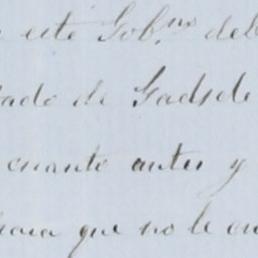 este Gob.no deb
tado de Gadsde
cuanto antes y
para que no le en